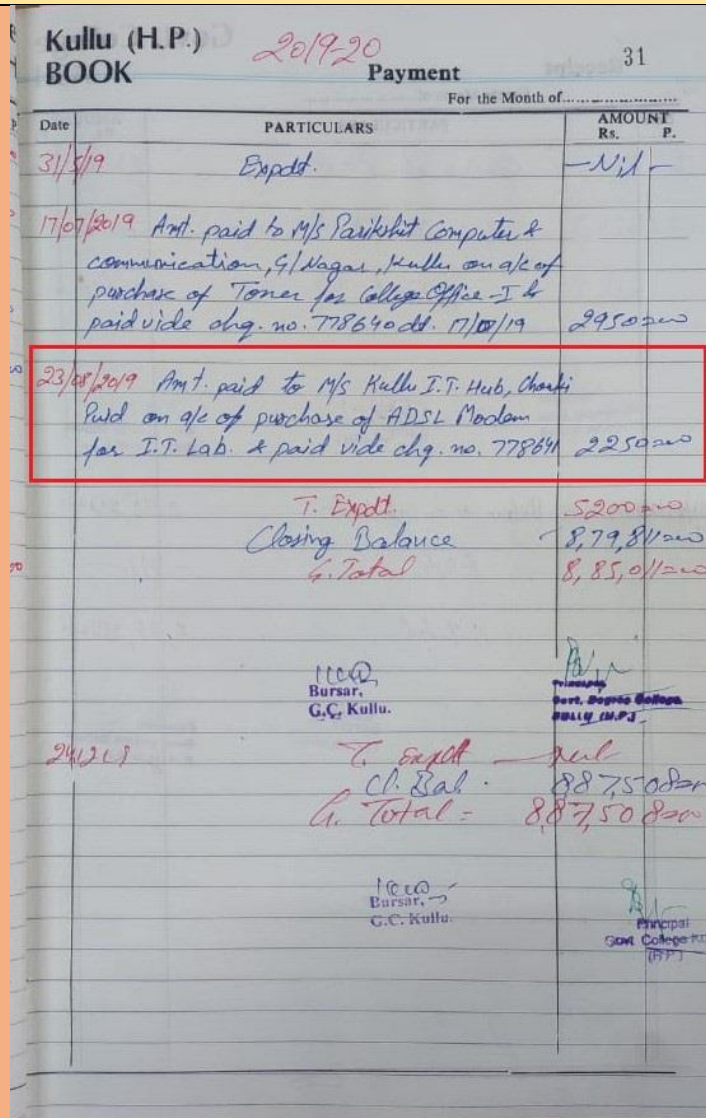 Kullu (H.P.) 2019-20 31
BOOK Payment
For the Month of
Date PARTICULARS AMOUNT
Rs. P.
31/5/19 Expdt. -Nil-
17/07/2019 Amt. paid to M/s Parikshit Computer &
communication, G/Nagar, Kullu on a/c of
purchase of Toner for College Office-I &
paid vide chq. no. 778640 dt. 17/07/19 2950=00
23/08/2019 Amt. paid to M/s Kullu I.T. Hub,
on a/c of purchase of ADSL Modem
for I.T. Lab. & paid vide chq. no. 778641 2250=00
T. Expdt. 5200=00
Closing Balance 8,79,811=00
G. Total 8,85,011=00
Bursar, Principal
G.C. Kullu. Govt. Degree College
KULLU (H.P.)
T. Expdt
Cl. Bal. 887,508=00
G. Total = 8,87,508=00
Bursar,
G.C. Kullu.
Principal
Govt. College
(H.P.)